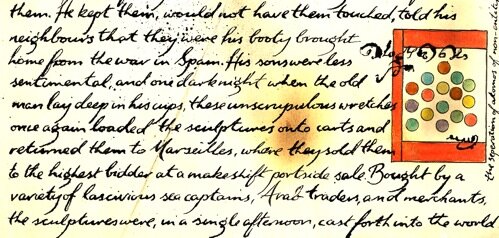 them. He kept them, would not have them touched, told his
neighbours that they were his booty brought
home from the war in Spain. His sons were less
sentimental, and one dark night when the old
man lay deep in his cups, these unscrupulous wretches
once again loaded the sculptures onto carts and
returned them to Marseilles, where they sold them
to the highest bidder at a makeshift portside sale. Bought by a
variety of lascivious sea captains, Arab traders, and merchants,
the sculptures were, in a single afternoon, cast forth into the world